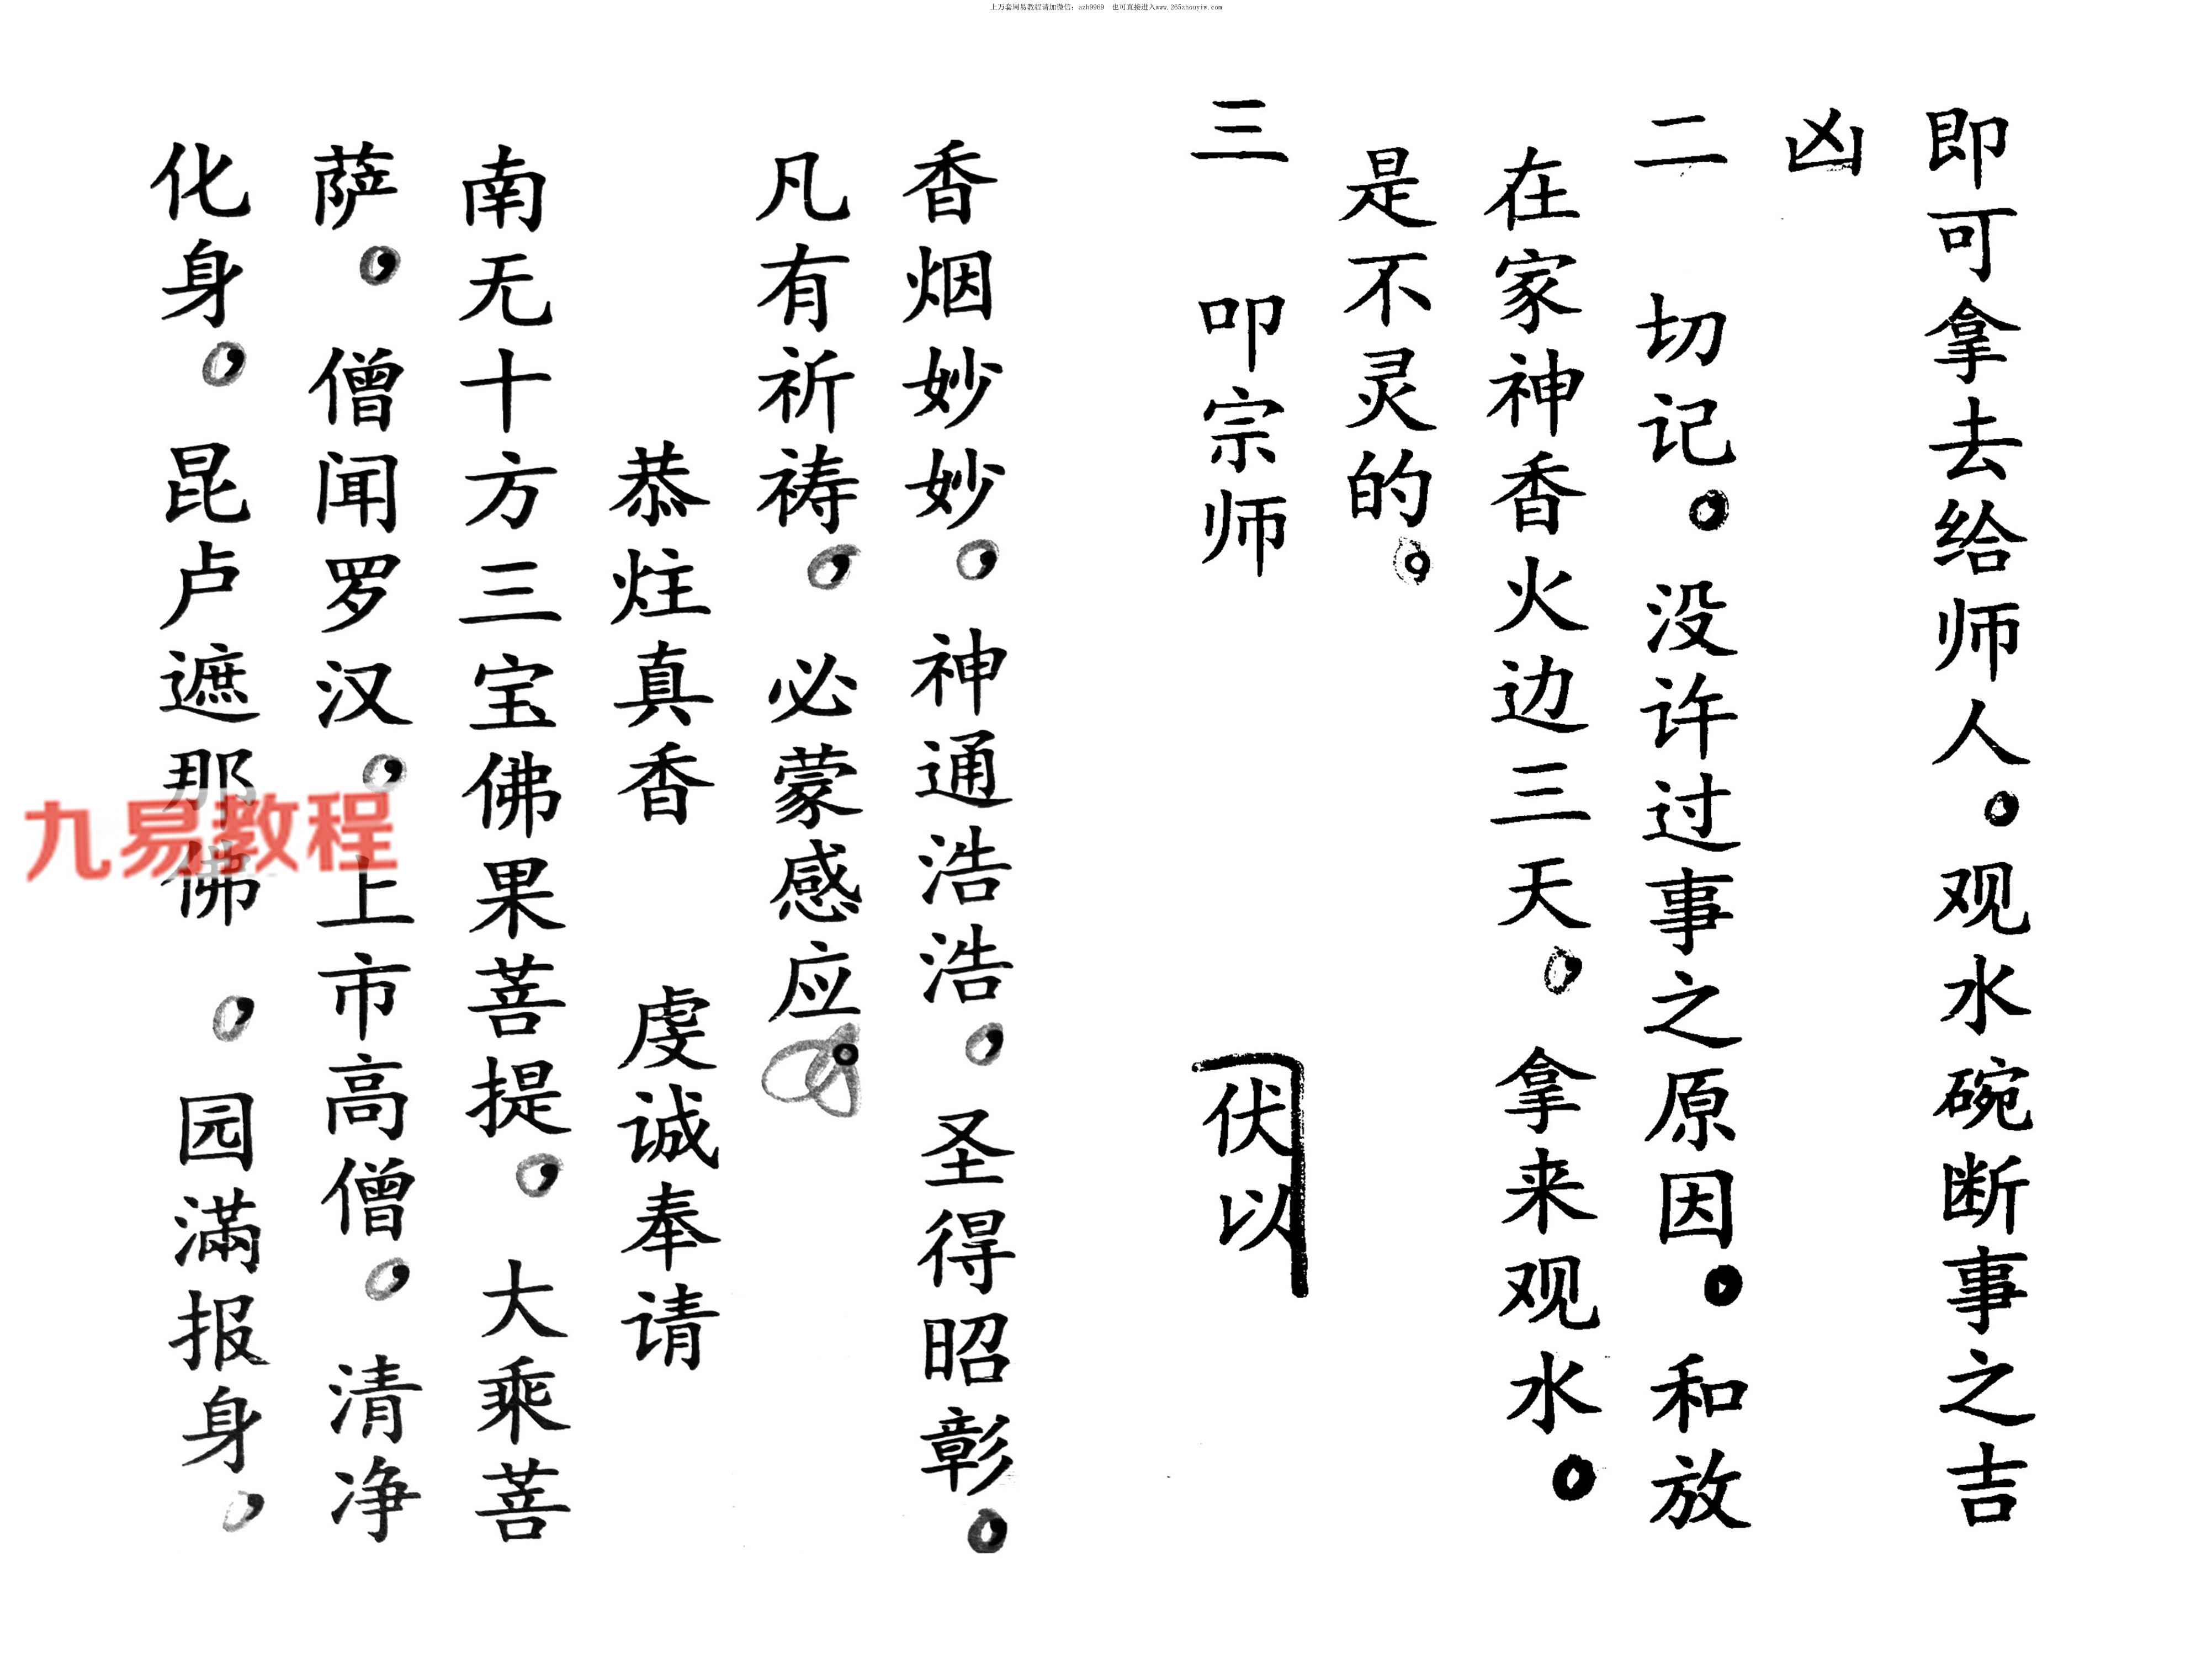 上万套周易教程请加微信：azh9969 也可直接进入www.265zhouyiw.com
即可拿去给师人。观水碗断事之吉
凶
二 切记。没许过事之原因。和放
在家神香火边三天。拿来观水。
是不灵的。
三 叩宗师 伏以
香烟妙妙。神通浩浩。圣得昭彰。
凡有祈祷。必蒙感应
恭炷真香 虔诚奉请
南无十方三宝佛果菩提。大乘菩
萨。僧闻罗汉。上市高僧。清净
化身。昆卢遮那佛。园满报身。
九易教程